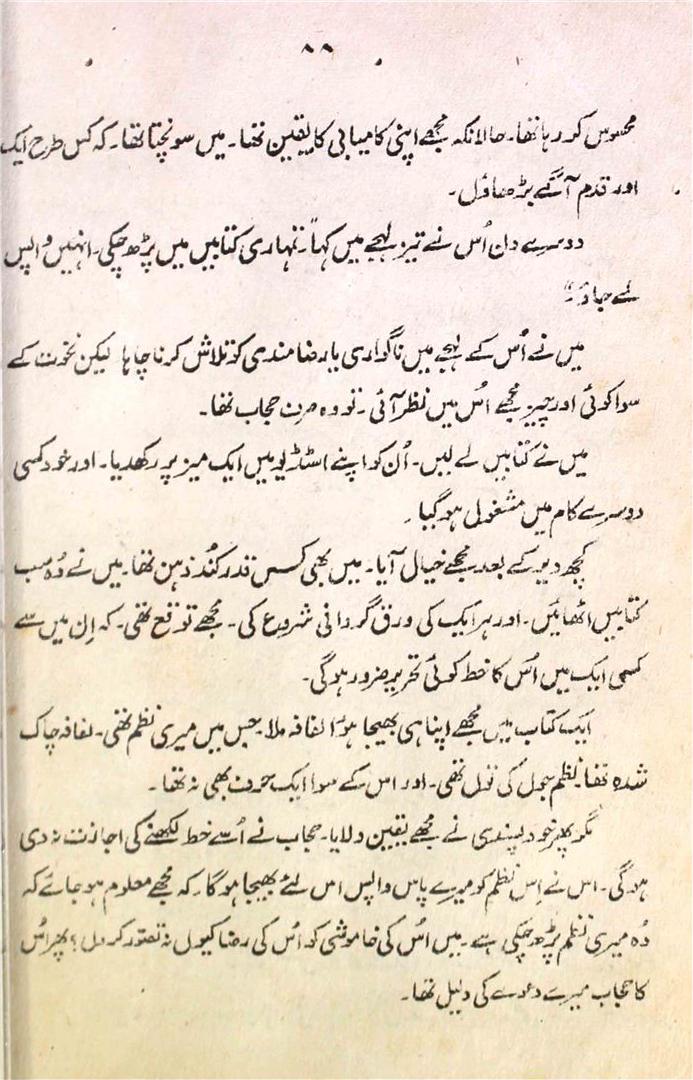 ۸۸
محسوس کر رہا تھا۔ حالانکہ مجھے اپنی کامیابی کا یقین تھا۔ میں سونچتا تھا۔ کہ کس طرح ایک
اور قدم آگے بڑھاؤں۔
دوسرے دن اُس نے تیز لہجے میں کہا "تمہاری کتابیں میں پڑھ چکی۔ انہیں واپس
لے جاؤ"
میں نے اُس کے لہجے میں ناگواری یا رضامندی کو تلاش کرنا چاہا لیکن نخوت کے
سوا کوئی اور چیز مجھے اُس میں نظر آئی۔ تو وہ صرف حجاب تھا۔
میں نے کتابیں لے لیں۔ اُن کو اپنے اسٹڈیو میں ایک میز پر رکھدیا۔ اور خود کسی
دوسرے کام میں مشغول ہو گیا۔
کچھ دیر کے بعد مجھے خیال آیا۔ میں بھی کس قدر کُند ذہن تھا۔ میں نے وُہ سب
کتابیں اٹھائیں۔ اور ہر ایک کی ورق گردانی شروع کی۔ مجھے توقع تھی۔ کہ اِن میں سے
کسی ایک میں اُس کا خط کوئی تحریر ضرور ہوگی۔
ایک کتاب میں مجھے اپنا ہی بھیجا ہوٗا لفافہ ملا۔ جس میں میری نظم تھی۔ لفافہ چاک
شدہ تھا۔ نظم جوں کی توں تھی۔ اور اس کے سوا ایک حرف بھی نہ تھا۔
مگر پھر خود پسندی نے مجھے یقین دلایا۔ حجاب نے اُسے خط لکھنے کی اجازت نہ دی
ہوگی۔ اس نے اِس نظم کو میرے پاس واپس اس لئے بھیجا ہوگا۔ کہ مجھے معلوم ہو جائے کہ
وُہ میری نظم پڑھ چکی ہے۔ میں اُس کی خاموشی کو اُس کی رضا کیوں نہ تصور کروں؟ پھر اُس
کا حجاب میرے دعوے کی دلیل تھا۔